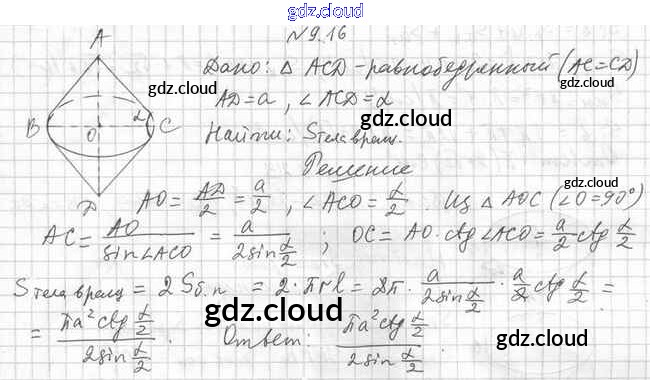 gdz.cloud
N 9.16
A
B
C
D
O
α
Дано: Δ ACD - равнобедренный (AC=CD)
gdz.cloud
gdz.cloud
AD=a, ∠ACD=α
gdz.cloud
Найти: Sтела вращ.
Решение
gdz.cloud
AO = AD/2 = a/2, ∠ACO = α/2. Из Δ AOC (∠O=90°)
AC = AO/sin∠ACO = a/(2sin α/2); OC = AO·ctg∠ACO = a/2 ctg α/2
gdz.cloud
Sтела вращ = 2Sб.п = 2·πrl = 2π · a/(2sin α/2) · a/2 ctg α/2 =
gdz.cloud
= πa² ctg α/2 / (2sin α/2). Ответ: πa² ctg α/2 / (2sin α/2).
gdz.cloud
gdz.cloud